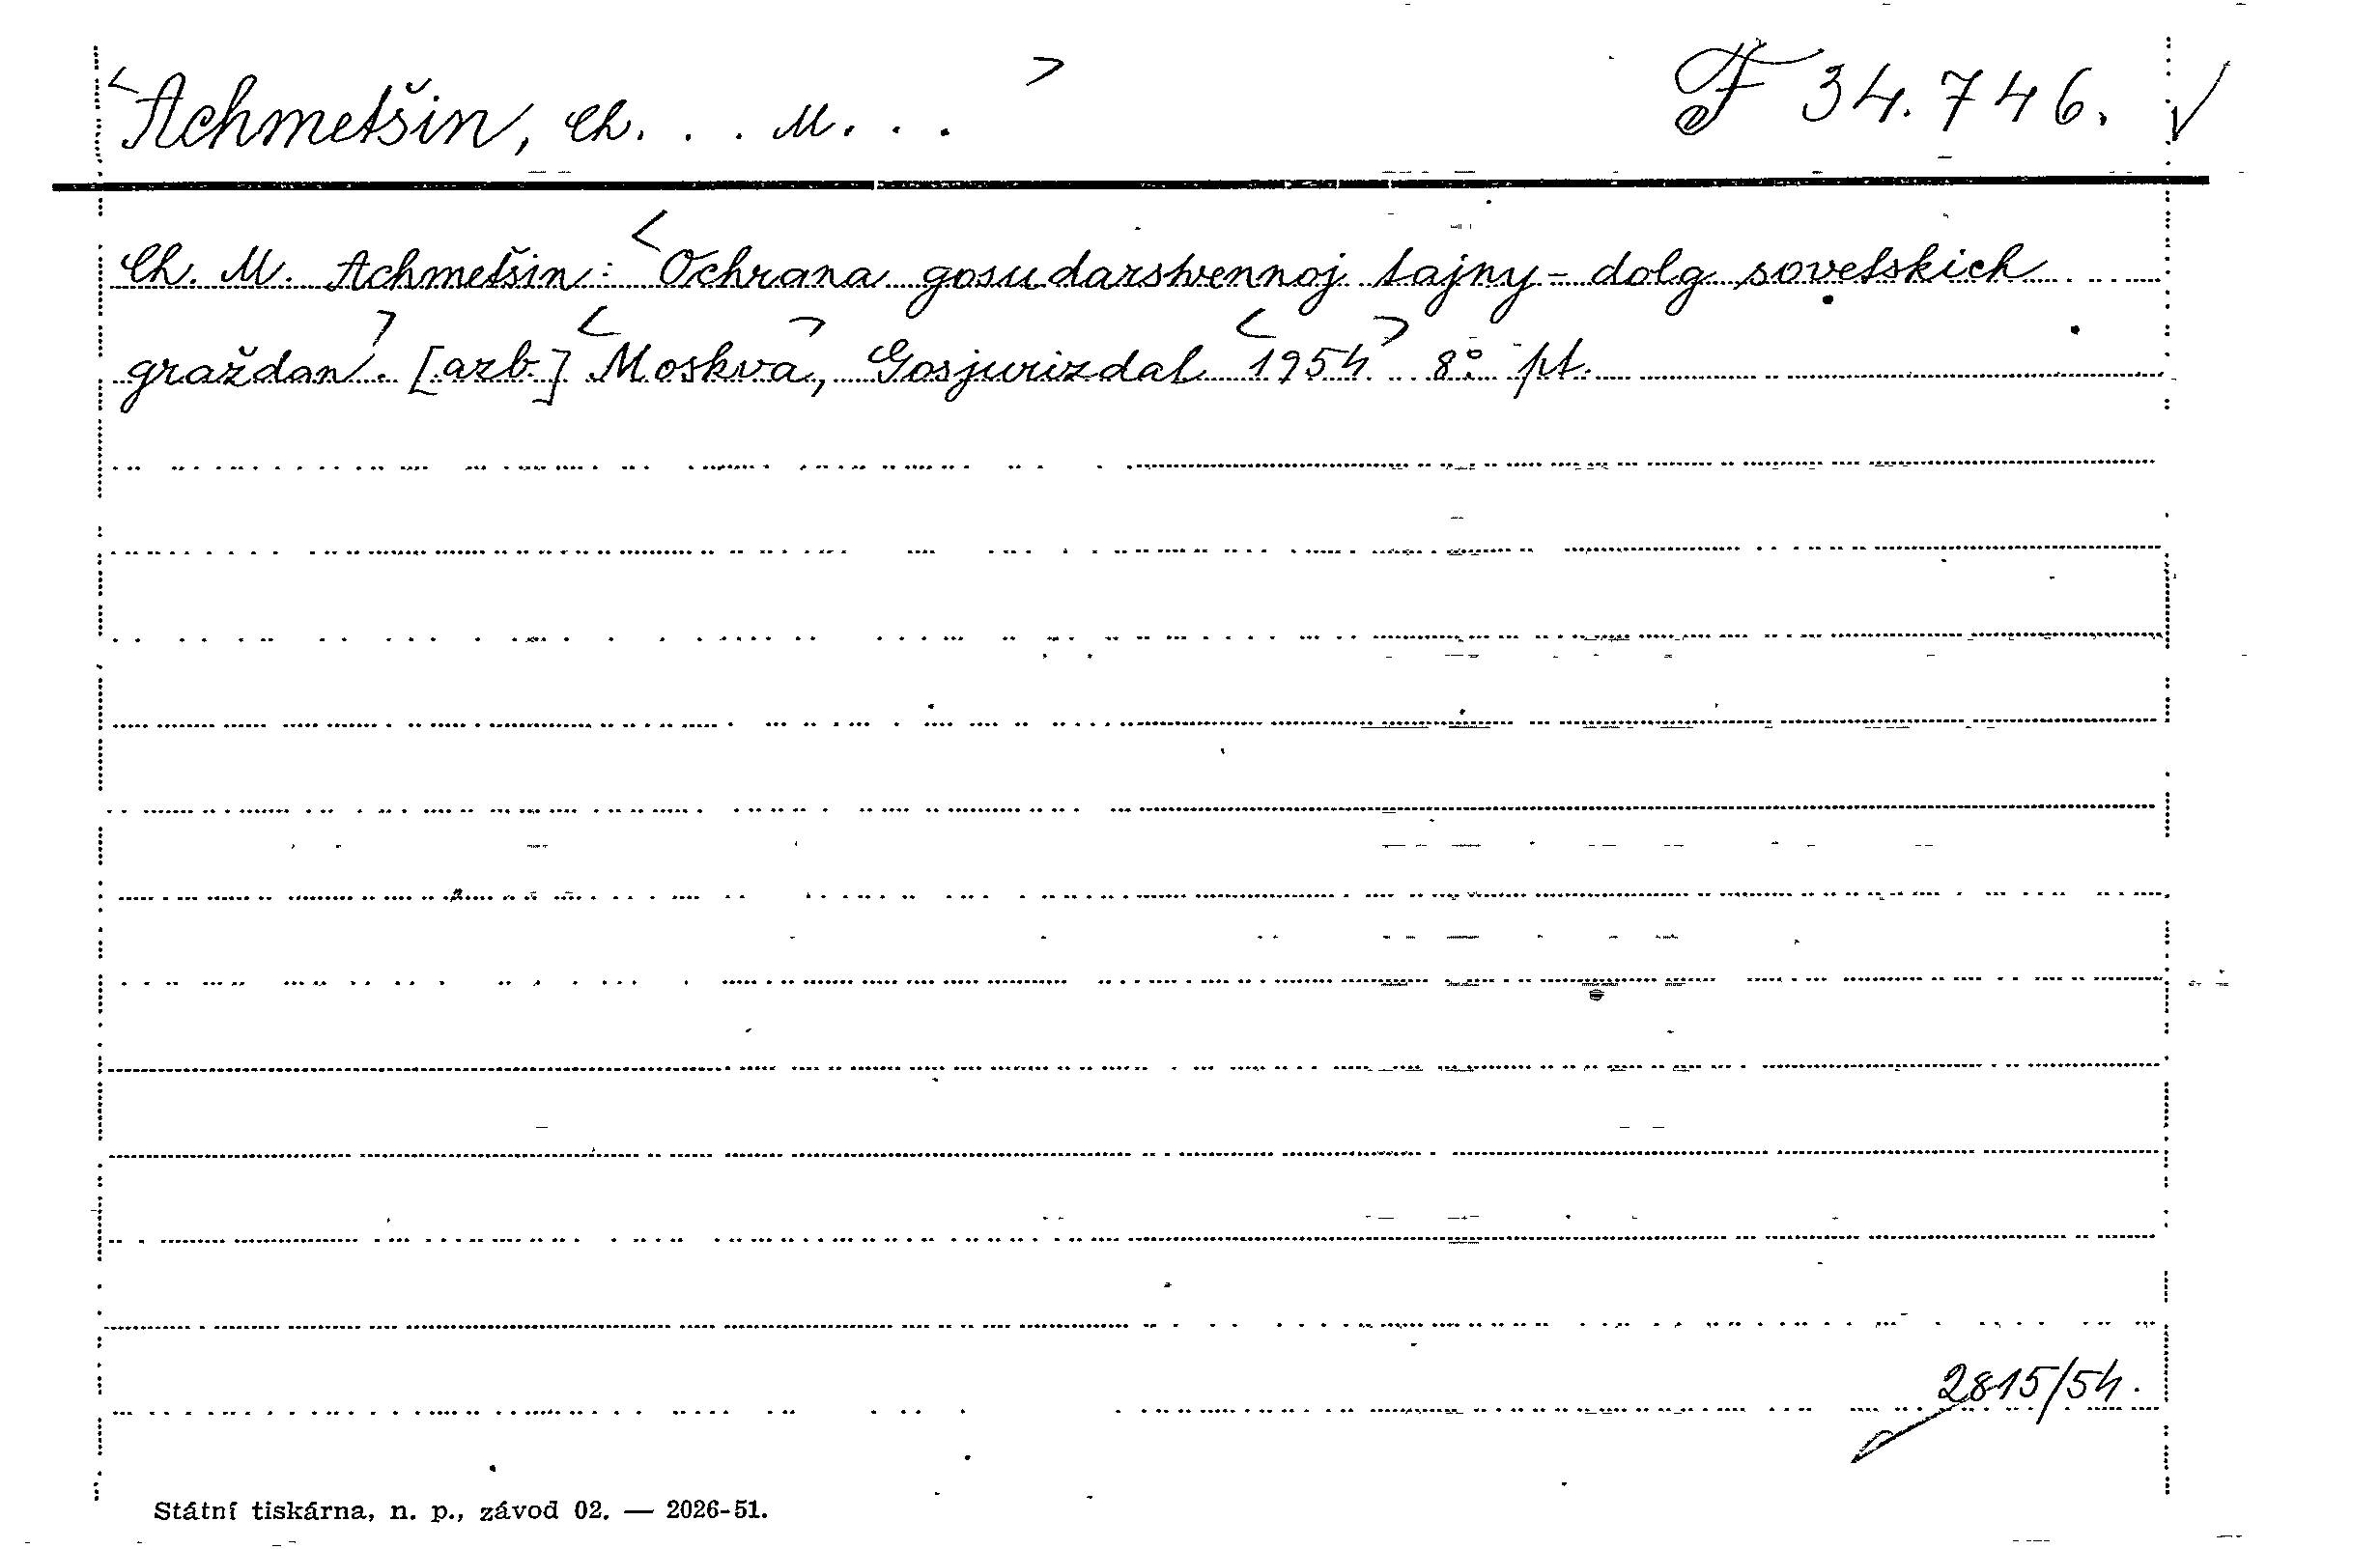 <Achmetšin, Ch. . . M. . . > F 34.746. √
Ch. M. Achmetšin: <Ochrana gosudarstvennoj tajny - dolg sovetskich
graždan>. [azb] <Moskva>, Gosjurizdat <1954> 8° pt.
2815/54.
Státní tiskárna, n. p., závod 02. — 2026-51.